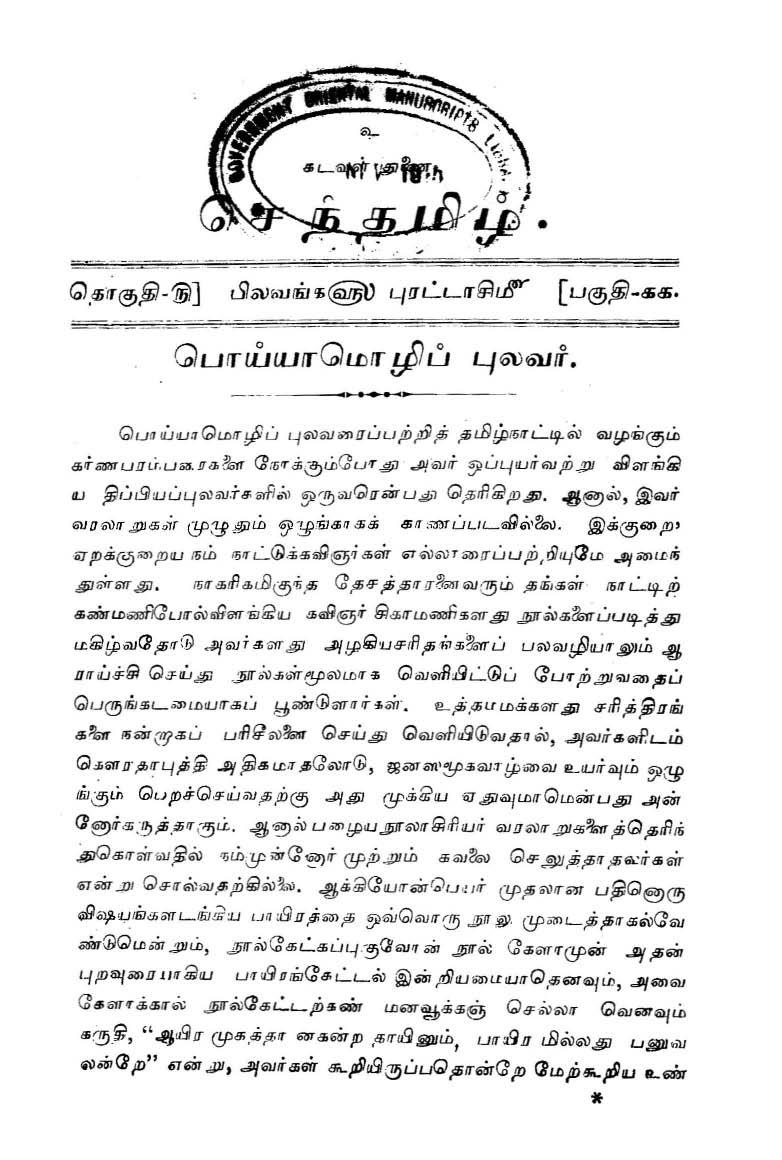 GOVERNMENT ORIENTAL MANUSCRIPTS
உ
கடவுள் துணை
செந்தமிழ்.
தொகுதி-௫] பிலவங்க௵ புரட்டாசி௴ [பகுதி-கக.
பொய்யாமொழிப் புலவர்.
பொய்யாமொழிப் புலவரைப்பற்றித் தமிழ்நாட்டில் வழங்கும்
கர்ணபரம்பரைகளை நோக்கும்போது அவர் ஒப்புயர்வற்று விளங்கி
ய திப்பியப்புலவர்களில் ஒருவரென்பது தெரிகிறது. ஆனால், இவர்
வரலாறுகள் முழுதும் ஒழுங்காகக் காணப்படவில்லை. இக்குறை,
ஏறக்குறைய நம் நாட்டுக்கவிஞர்கள் எல்லாரைப்பற்றியுமே அமைந்
துள்ளது. நாகரிகமிகுந்த தேசத்தாரனைவரும் தங்கள் நாட்டிற்
கண்மணிபோல்விளங்கிய கவிஞர் சிகாமணிகளது நூல்களைப்படித்து
மகிழ்வதோடு அவர்களது அழகியசரிதங்களைப் பலவழியாலும் ஆ
ராய்ச்சி செய்து நூல்கள்மூலமாக வெளியிட்டுப் போற்றுவதைப்
பெருங்கடமையாகப் பூண்டுளார்கள். உத்தமமக்களது சரித்திரங்
களை நன்றாகப் பரிசீலனை செய்து வெளியிடுவதால், அவர்களிடம்
கௌரதாபுத்தி அதிகமாதலோடு, ஜனஸமூகவாழ்வை உயர்வும் ஒழு
ங்கும் பெறச்செய்வதற்கு அது முக்கிய ஏதுவுமாமென்பது அன்
னோர்கருத்தாகும். ஆனால் பழையநூலாசிரியர் வரலாறுகளைத்தெரிந்
துகொள்வதில் நம்முன்னோர் முற்றும் கவலை செலுத்தாதவர்கள்
என்று சொல்வதற்கில்லை. ஆக்கியோன்பெயர் முதலான பதினொரு
விஷயங்களடங்கிய பாயிரத்தை ஒவ்வொரு நூலு முடைத்தாகல்வே
ண்டுமென்றும், நூல்கேட்கப்புகுவோன் நூல் கேளாமுன் அதன்
புறவுரையாகிய பாயிரங்கேட்டல் இன்றியமையாதெனவும், அவை
கேளாக்கால் நூல்கேட்டற்கண் மனவூக்கஞ் செல்லா வெனவும்
கருதி, “ஆயிர முகத்தா னகன்ற தாயினும், பாயிர மில்லது பனுவ
லன்றே” என்று, அவர்கள் கூறியிருப்பதொன்றே மேற்கூறிய உண்
*